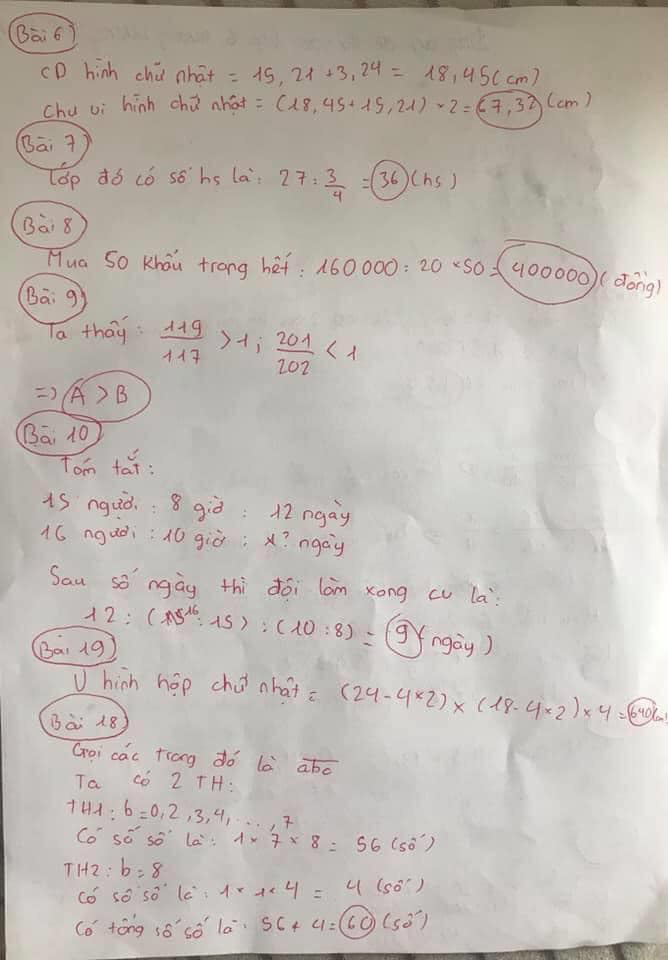 Bài 6
CD hình chữ nhật = 15,21 + 3,24 = 18,45 (cm)
Chu vi hình chữ nhật = (18,45 + 15,21) × 2 = 67,32 (cm)
Bài 7
Lớp đó có số hs là: 27 : 3/4 = 36 (hs)
Bài 8
Mua 50 khẩu trang hết: 160000 : 20 × 50 = 400000 (đồng)
Bài 9
Ta thấy: 119/117 > 1; 201/202 < 1
=> A > B
Bài 10
Tóm tắt:
15 người: 8 giờ: 12 ngày
16 người: 10 giờ: x? ngày
Sau số ngày thì đội làm xong cv là:
12 : (16 : 15) : (10 : 8) = 9 (ngày)
Bài 19
V hình hộp chữ nhật = (24 - 4×2) × (18 - 4×2) × 4 = 640
Bài 18
Gọi các trang đó là abc
Ta có 2 TH:
TH1: b = 0, 2, 3, 4, ..., 7
Có số số là: 1 × 7 × 8 = 56 (số)
TH2: b = 8
Có số số là: 1 × 1 × 4 = 4 (số)
Có tổng số số là: 56 + 4 = 60 (số)